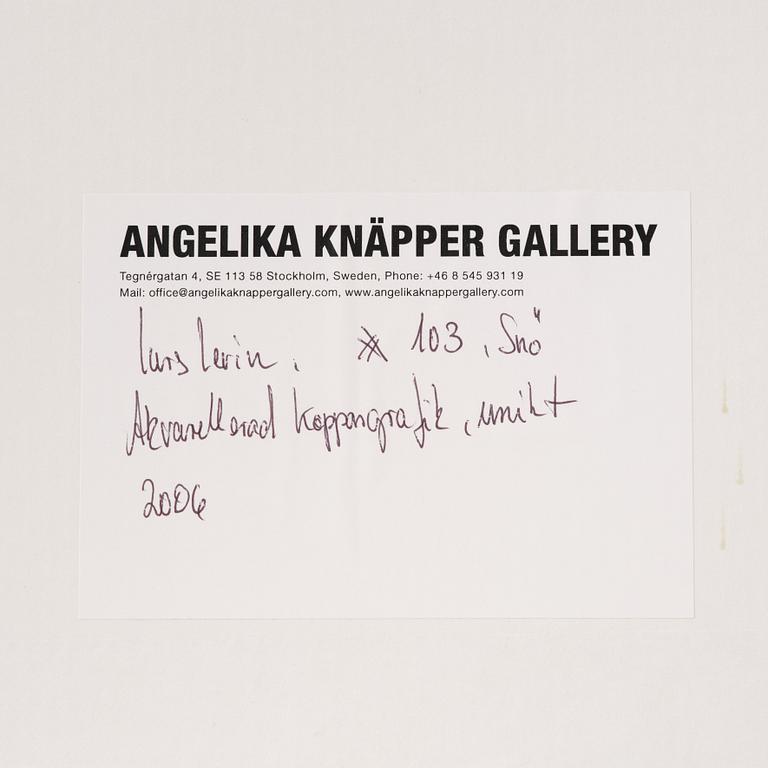 ANGELIKA KNÄPPER GALLERY
Tegnérgatan 4, SE 113 58 Stockholm, Sweden, Phone: +46 8 545 931 19
Mail: office@angelikaknappergallery.com, www.angelikaknappergallery.com
Lars Lerin. # 103 , Snö"
Akvarellerad koppargrafik, unikt
2006